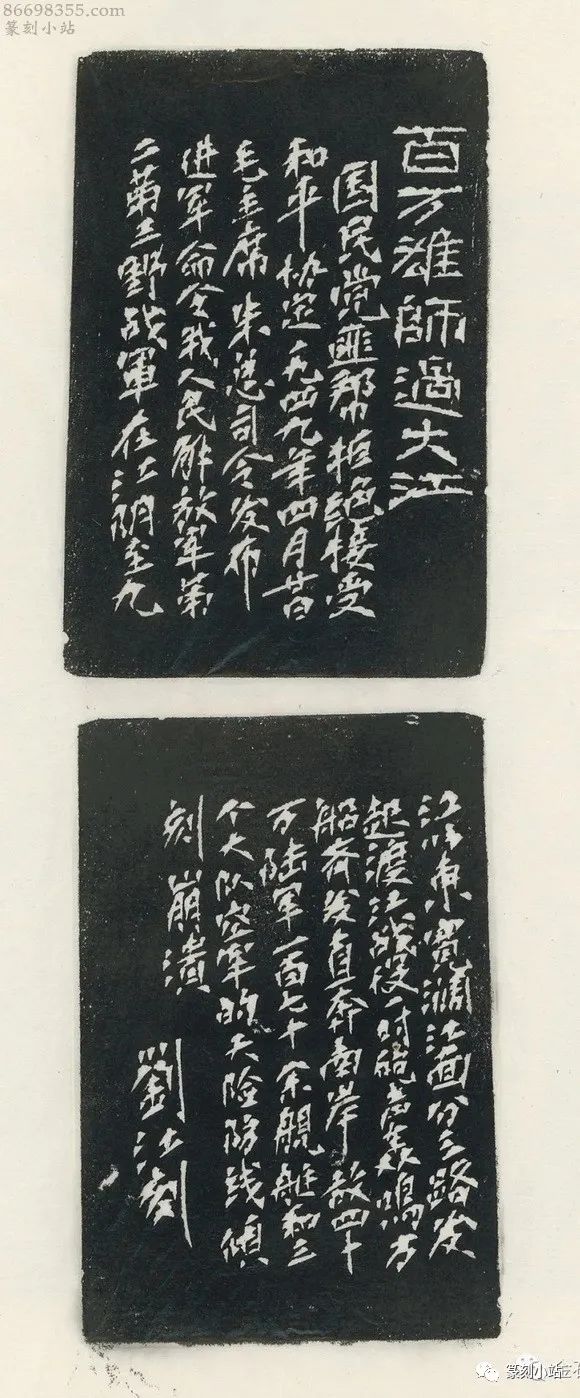 86698355.com
篆刻小站
百万雄師過大江
国民党匪帮拒绝接受
和平协定一九四九年四月廿日
毛主席朱总司令发布
进军命令我人民解放军第
二第三野战軍在江阴至九
江东宽濶江面分三路发
起渡江战役一时砲声轰鳴万
船齐发直奔南岸敌四十
万陆军一百七十余舰艇和三
个大队空军的天险防线傾
刻崩溃
劉江刻
篆刻小站